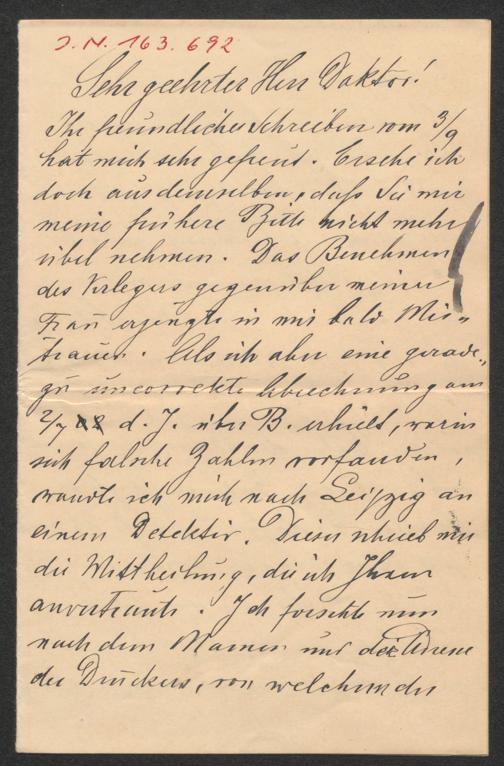 J. N. 163.692
Sehr geehrter Herr Doktor!
Ihr freundliches Schreiben vom 3/9
hat mich sehr gefreut. Ersehe ich
doch aus demselben, daß Sie mir
meine frühere Bitte nicht mehr
übel nehmen. Das Benehmen
des Verlegers gegenüber meiner
Frau erzeugte in mir bald Mis-
trauen. Als ich aber eine gerade-
zu uncorrekte Abrechnung am
2/7 d. J. über B. erhielt, worin
sich falsche Zahlen vorfanden,
wandte ich mich nach Leipzig an
einem Detektiv. Dieser schrieb mir
die Mittheilung, die ich Ihnen
anvertraute. Ich forschte nun
nach dem Namen und der Adresse
des Druckers, von welchem der